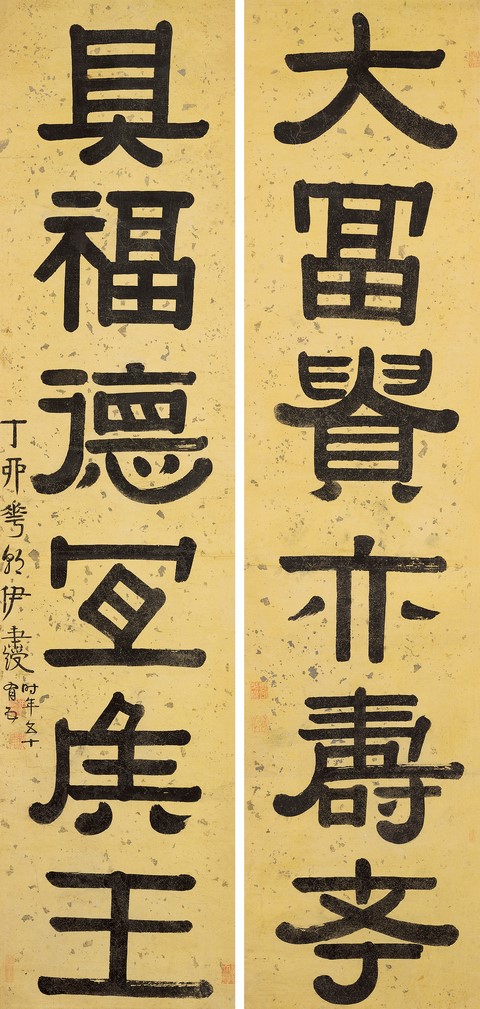 大冨貴亦壽考
具福德冝侯王
丁卯華朝伊秉綬
時年五十
有四